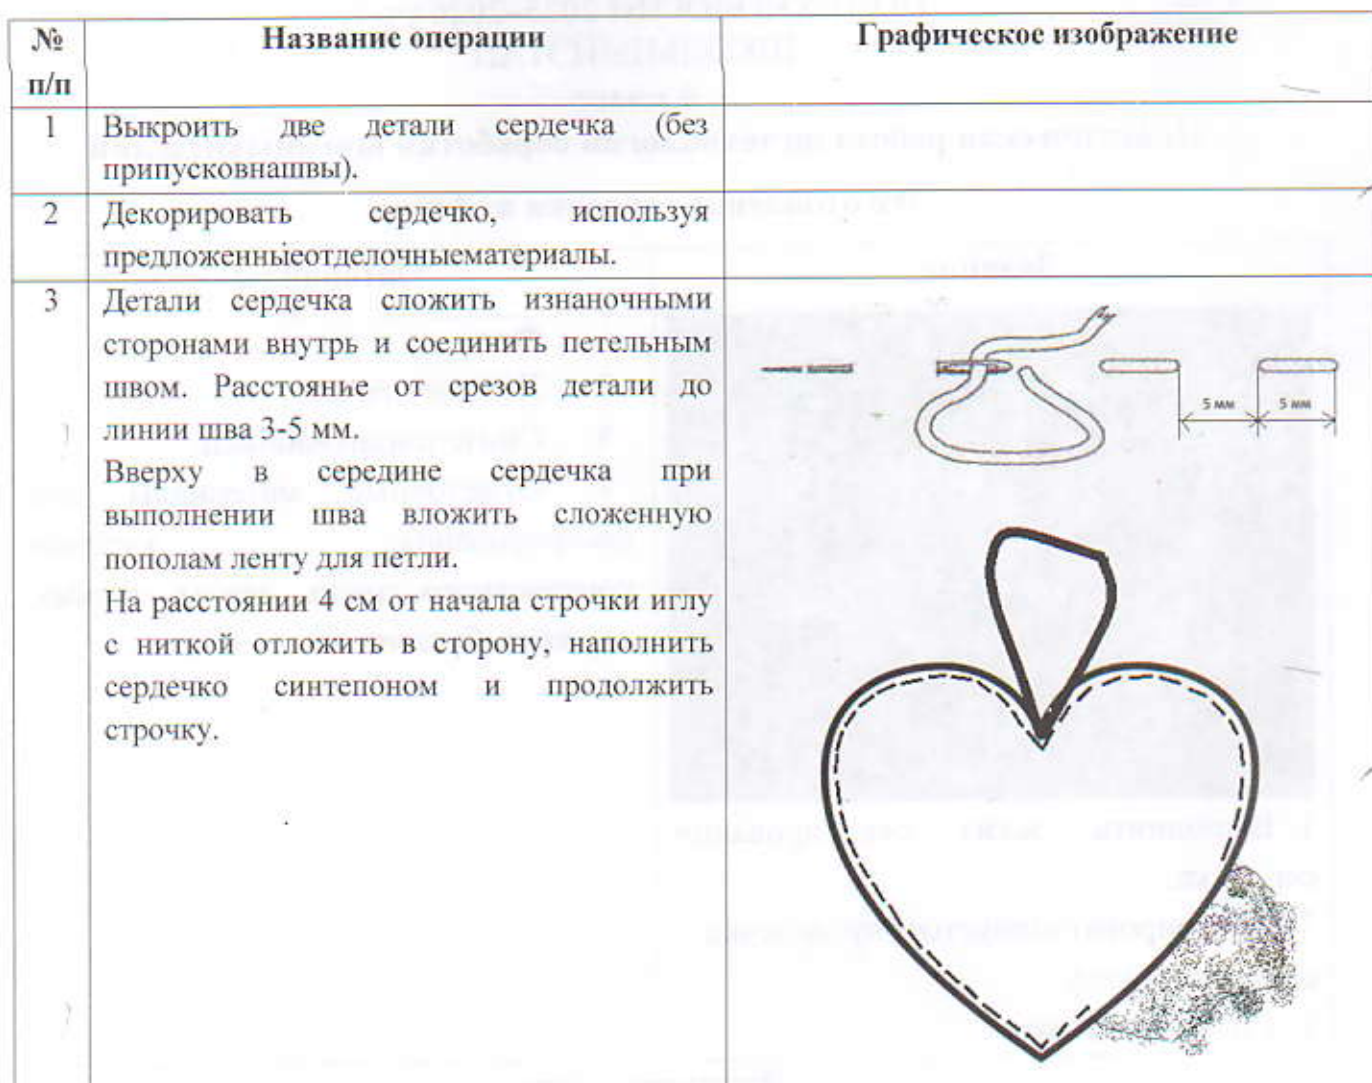 № п/п
Название операции
Графическое изображение
1
Выкроить две детали сердечка (без
припусковнашвы).
2
Декорировать сердечко, используя
предложенныеотделочныематериалы.
3
Детали сердечка сложить изнаночными
сторонами внутрь и соединить петельным
швом. Расстояние от срезов детали до
линии шва 3-5 мм.
Вверху в середине сердечка при
выполнении шва вложить сложенную
пополам ленту для петли.
На расстоянии 4 см от начала строчки иглу
с ниткой отложить в сторону, наполнить
сердечко синтепоном и продолжить
строчку.
5 мм
5 мм